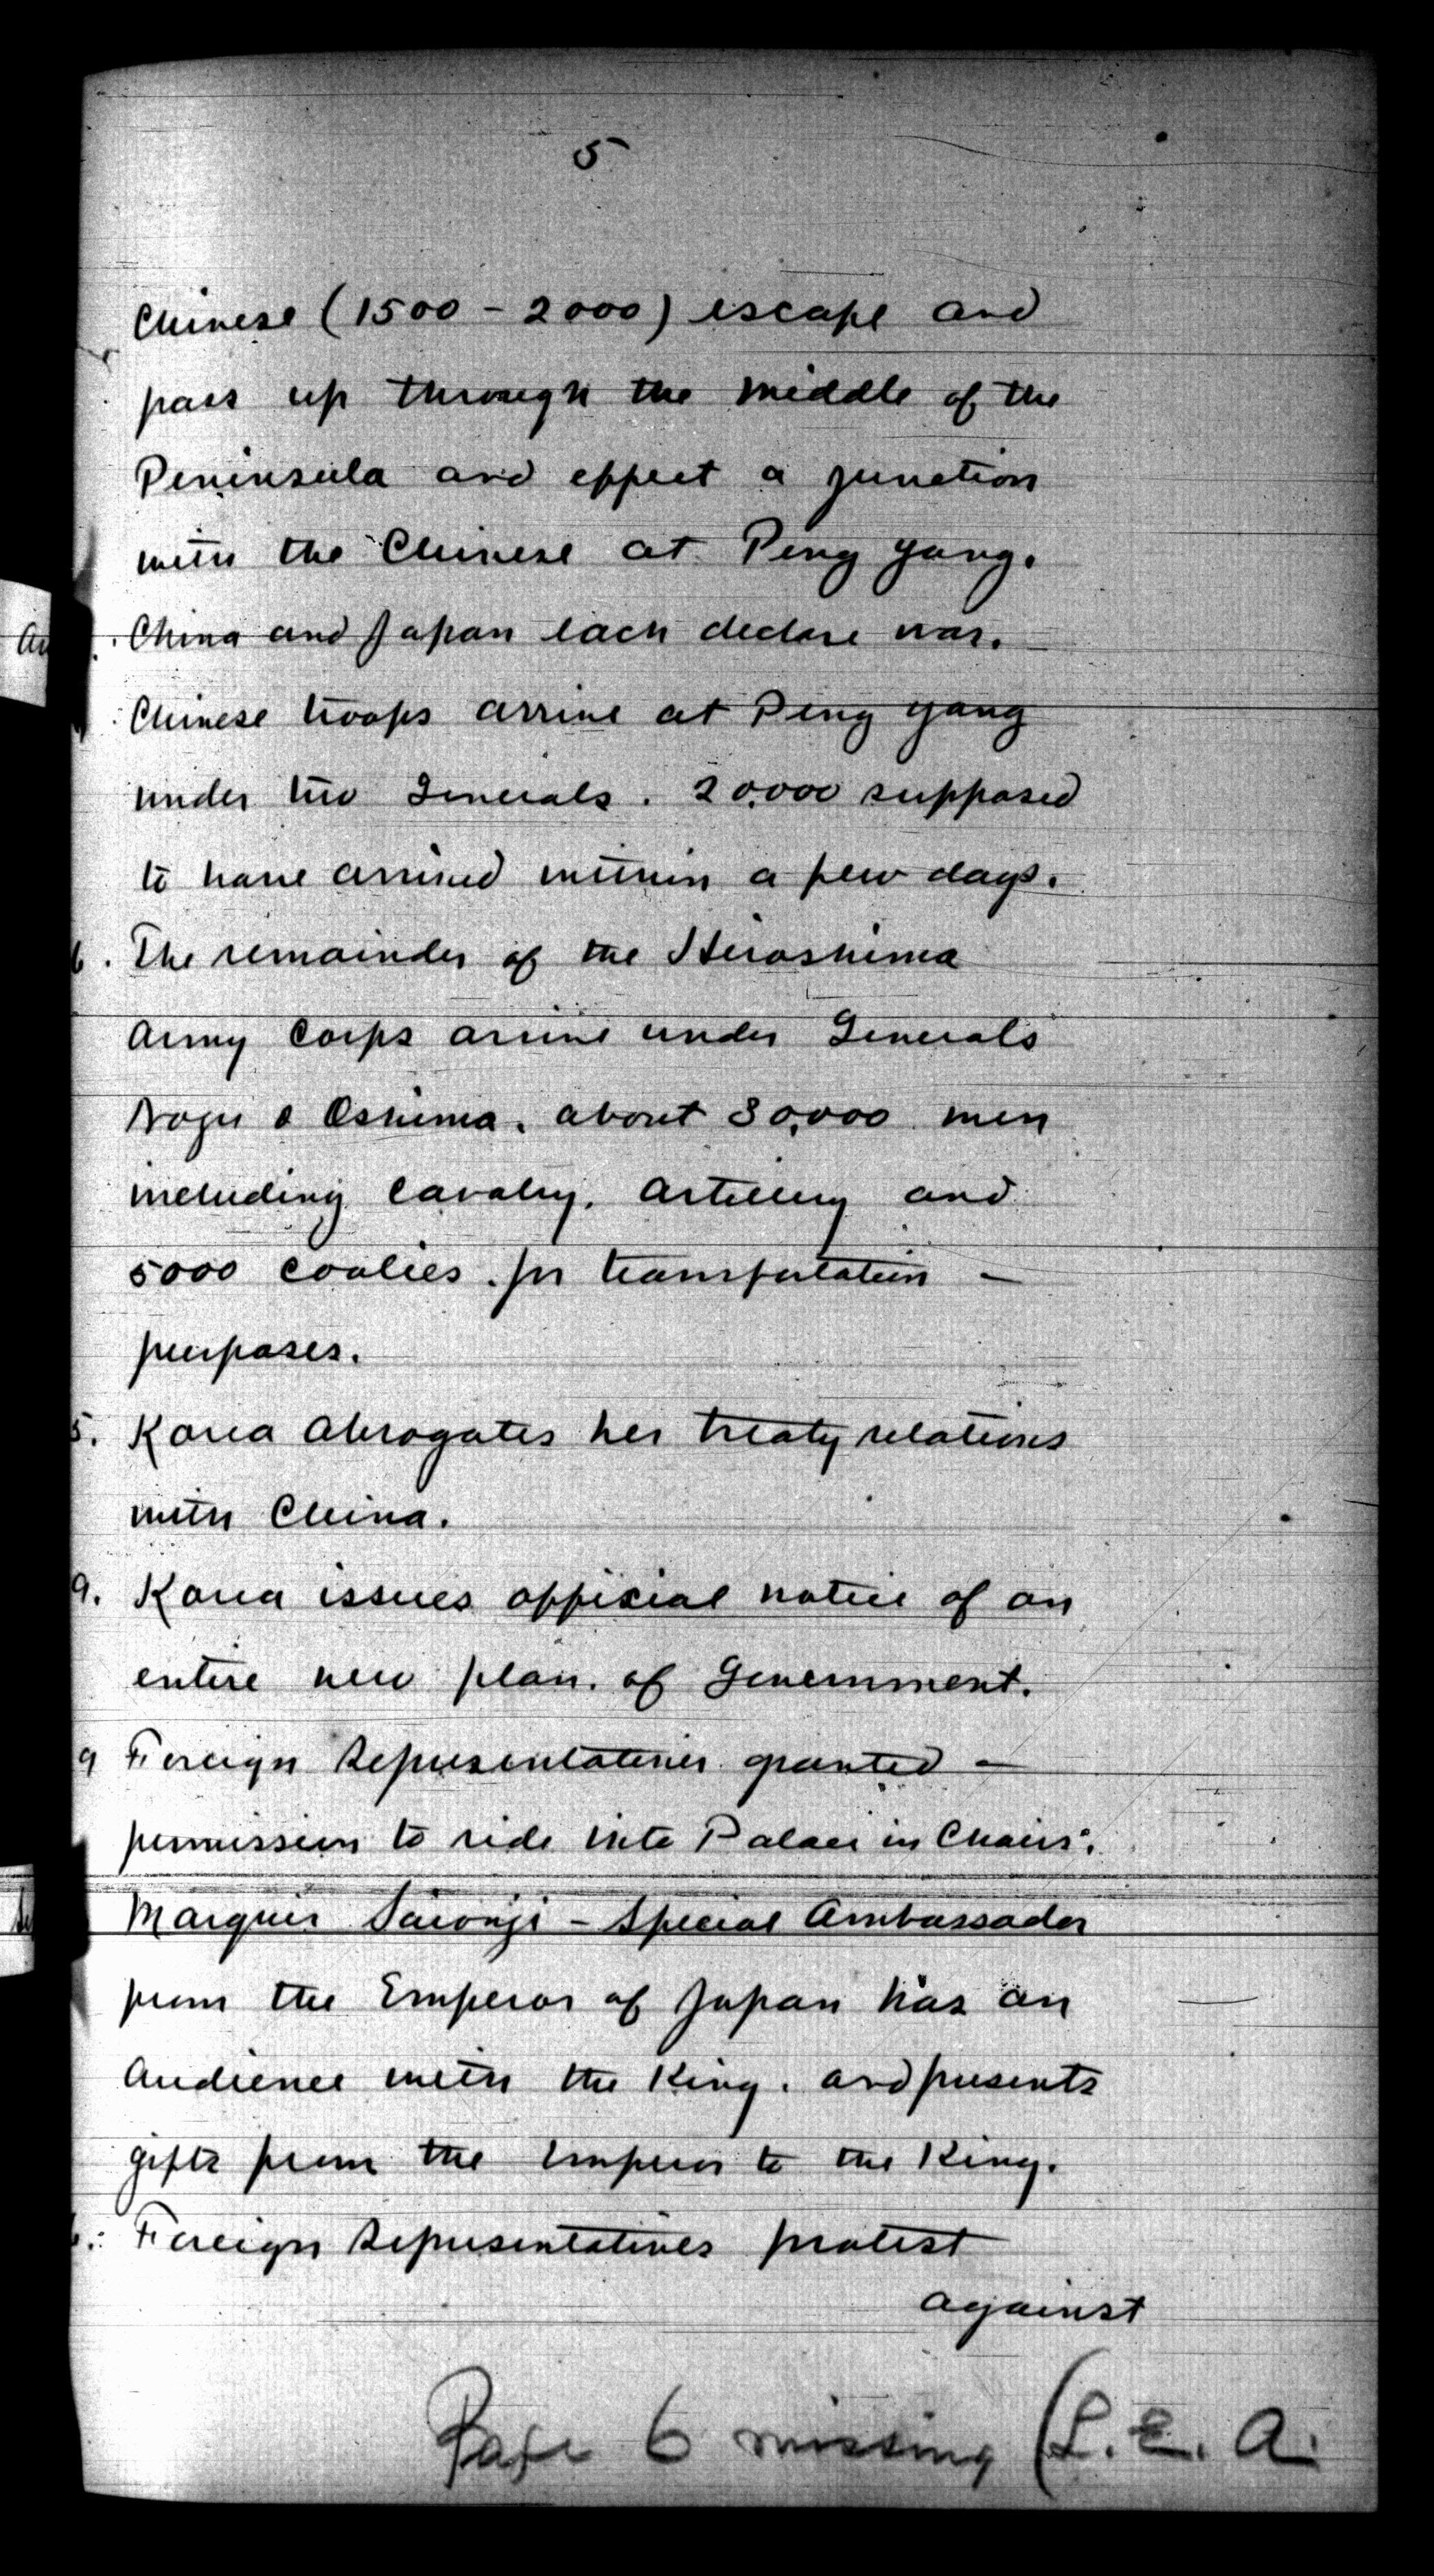 5
Chinese (1500 - 2000) escape and
pass up through the middle of the
Peninsula and effect a junction
with the Chinese at Peng yang.
China and Japan each declare war.
Chinese troops arrive at Peng yang
under two Generals. 20,000 supposed
to have arrived within a few days.
6. The remainder of the Hiroshima
Army Corps arrive under Generals
Nogu & Oshima. about 30,000 men
including Cavalry, Artillery and
5000 coolies for transportation -
purposes.
5. Korea Abrogates her treaty relations
with China.
9. Korea issues official notice of an
entire new plan of Government.
9 Foreign Representatives granted -
permission to ride into Palace in Chairs.
Marquis Saionji - Special Ambassador
from the Emperor of Japan has an
Audience with the King. and presents
gifts from the Emperor to the King.
Foreign Representatives protest
against
Page 6 missing (L.E.A.